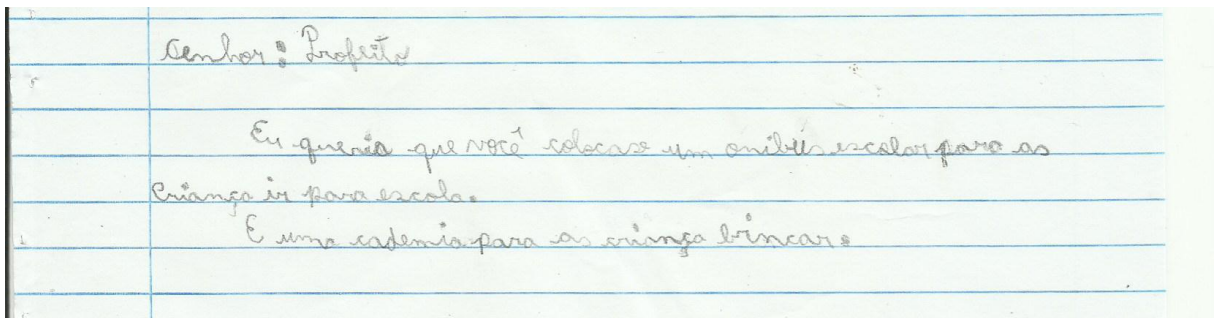 Senhor: Profeito
Eu queria que você colocase um onibus escolar para as
criança ir para escola.
E uma cademia para as criança brincar.